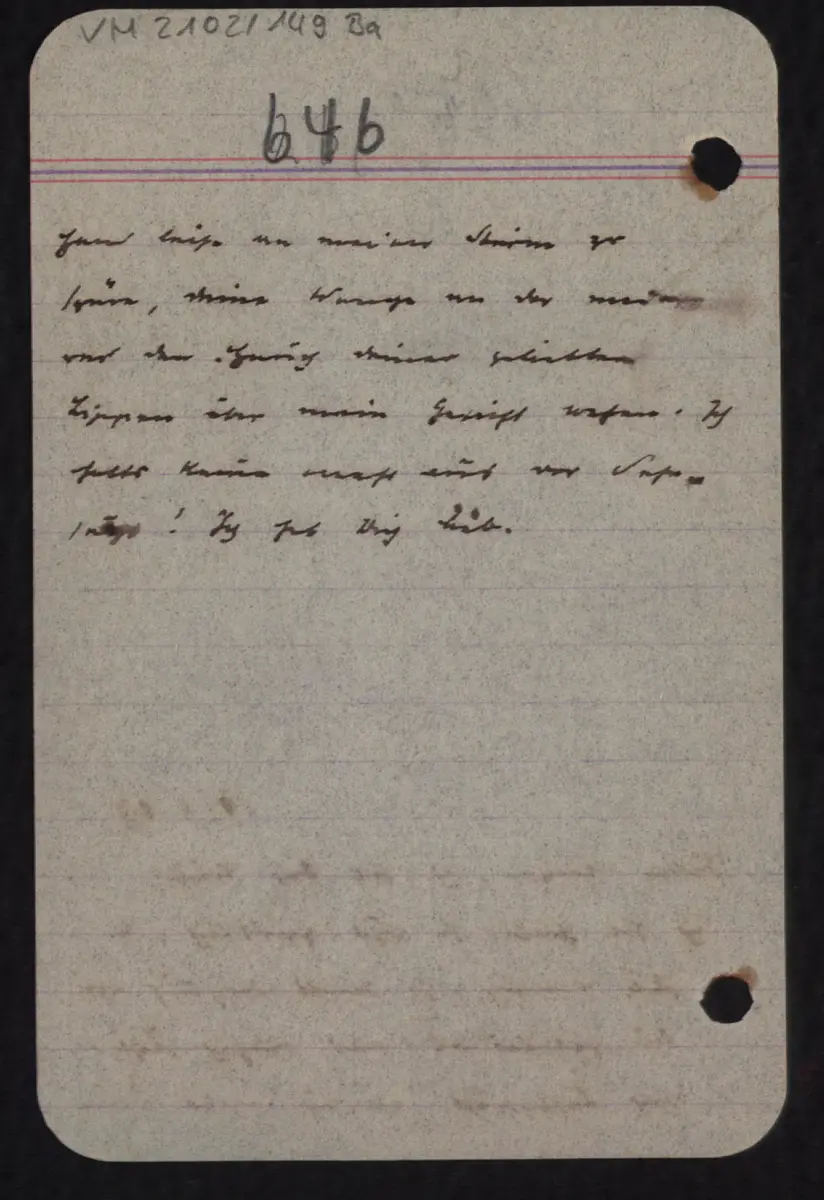 VM 2102/149 Ba
646
Hand leise an meiner Stirne zu
spüren, deine Wange an der meinen
und den Hauch deiner geliebten
Lippen über mein Gesicht wehen. Ich
halts kaum mehr aus vor Sehn-
sucht! Ich hab Dich lieb.